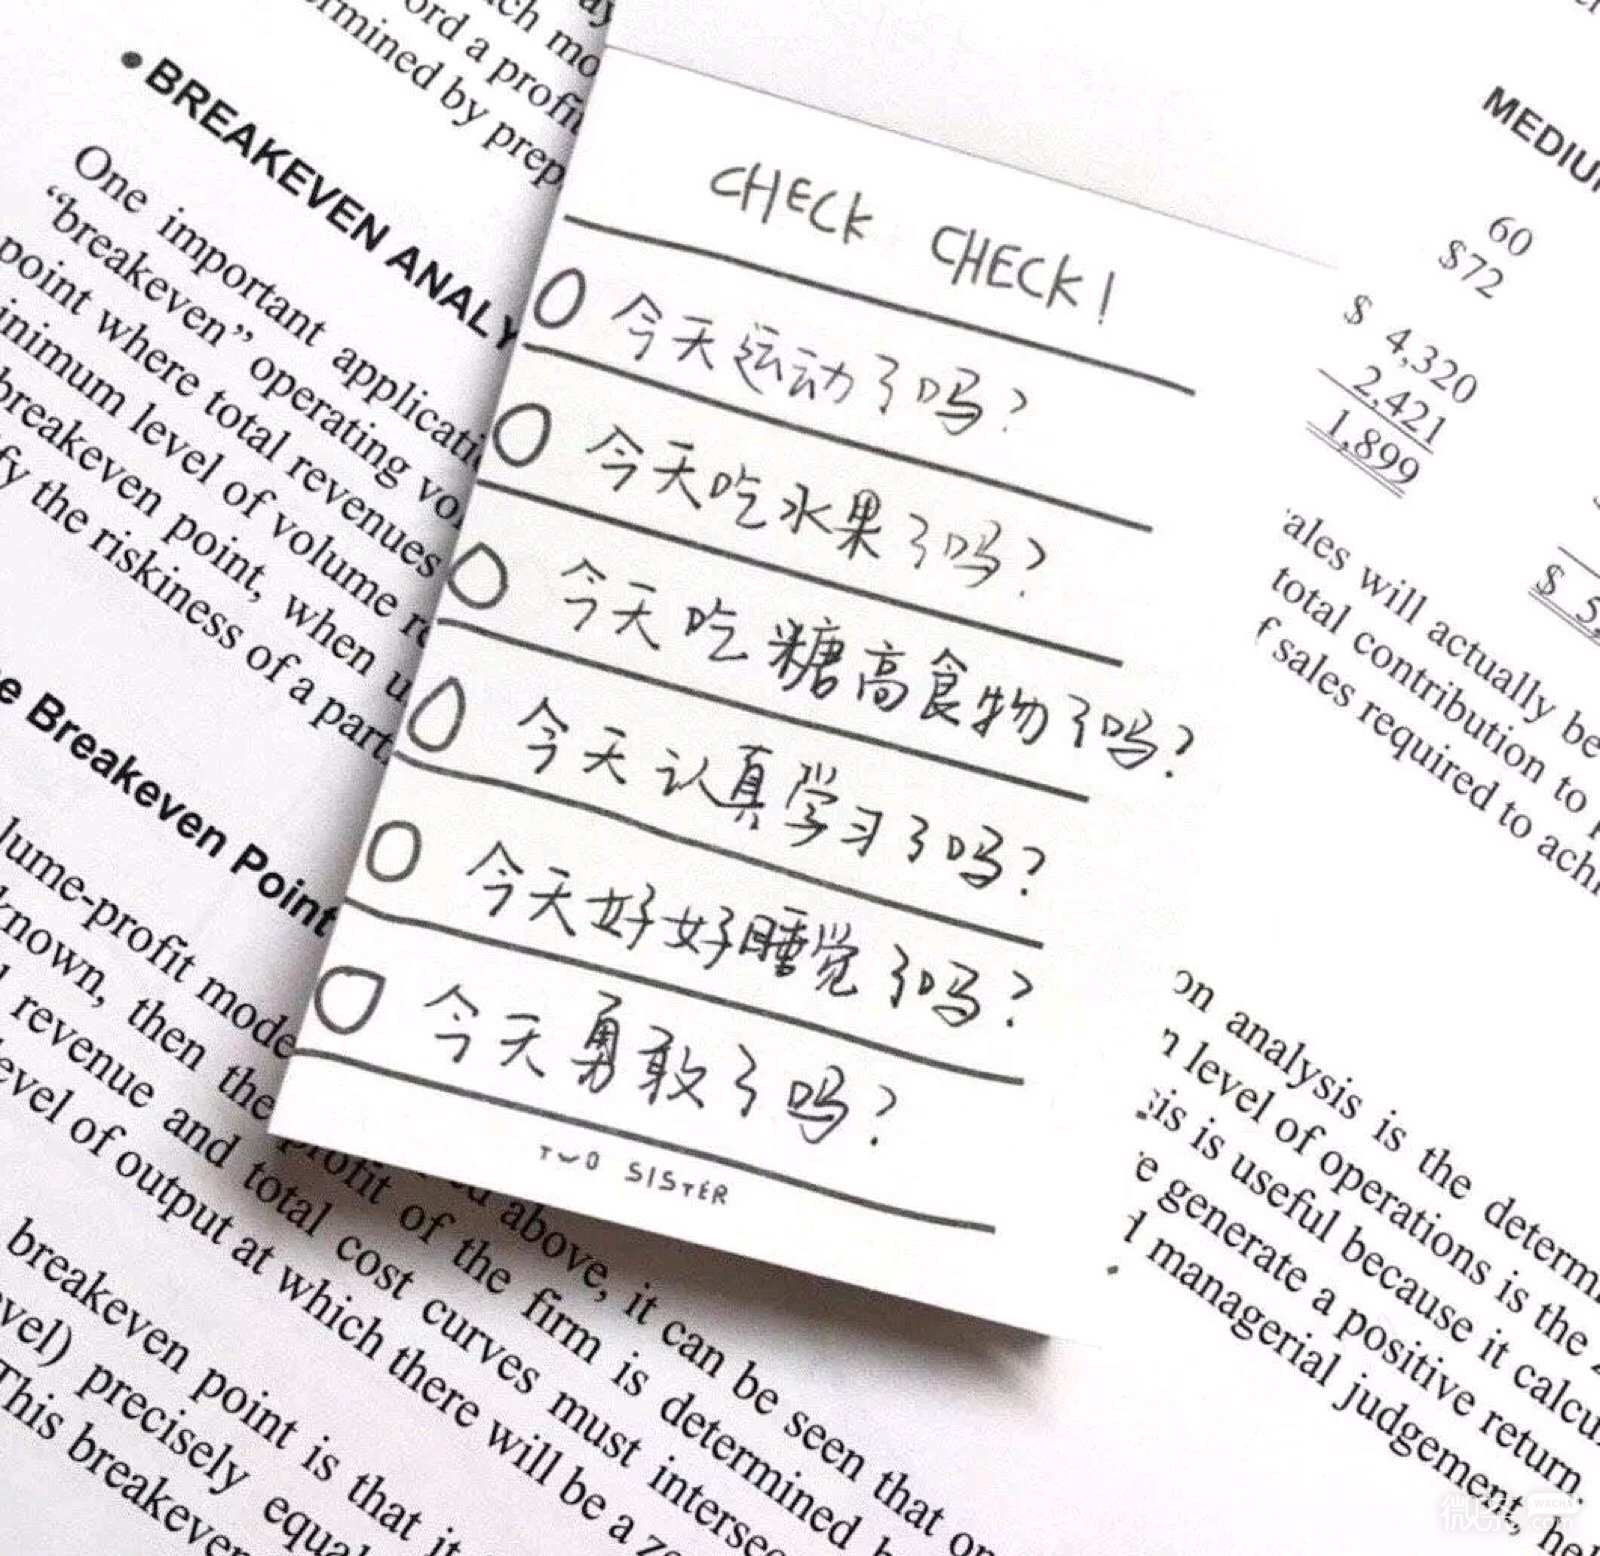 ord a profit
rmined by prep
• BREAKEVEN ANALY
One important applicati
“breakeven” operating vo
point where total revenues
inimum level of volume re
breakeven point, when u
fy the riskiness of a part
e Breakeven Point
lume-profit mode
known, then the profit of the firm is determined
revenue and total cost curves must intersec
level of output at which there will be a ze
above, it can be seen that
breakeven point is that it
vel) precisely equa
This breakeven
CHECK CHECK!
今天运动了吗?
今天吃水果了吗?
今天吃糖高食物了吗?
今天认真学习了吗?
今天好好睡觉了吗?
今天勇敢了吗?
TWO SISTER
MEDIU
60
$72
$ 4,320
2,421
1,899
$ 5,
ales will actually be
total contribution to
f sales required to achi
on analysis is the determ
level of operations is the
is is useful because it calcu
e generate a positive return.
managerial judgement, he
微茶
WXCHA
.com